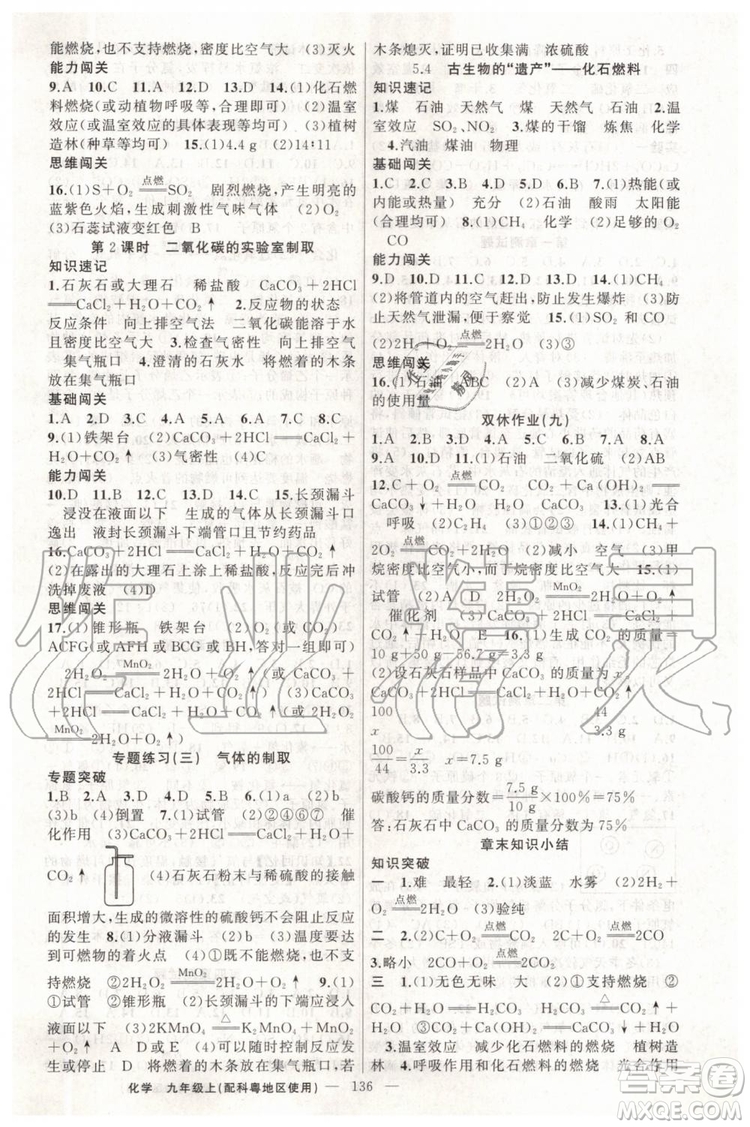 能燃烧,也不支持燃烧,密度比空气大 (3)灭火
能力闯关
9.A 10.D 11.A 12.D 13.D 14.(1)化石燃
料燃烧(或动植物呼吸等,合理即可) (2)温室
效应(或温室效应的具体表现等均可) (3)植树
造林(种草等均可) 15.(1)4.4 g (2)14∶11
思维闯关
16.(1)S+O₂ 点燃 SO₂ 剧烈燃烧,产生明亮的
蓝紫色火焰,生成刺激性气味气体 (2)O₂
(3)石蕊试液变红色 (4)B
第2课时 二氧化碳的实验室制取
知识速记
1.石灰石或大理石 稀盐酸 CaCO₃+2HCl
══CaCl₂+H₂O+CO₂↑ 2.反应物的状态
反应条件 向上排空气法 二氧化碳能溶于水
且密度比空气大 3.检查气密性 向上排空气
集气瓶口 4.澄清的石灰水 将燃着的木条
放在集气瓶口
基础闯关
1.A 2.D 3.C 4.A 5.A 6.C 7.C 8.C
9.(1)铁架台 (2)CaCO₃+2HCl══CaCl₂+
H₂O+CO₂↑ (3)气密性
能力闯关
10.D 11.B 12.D 13.C 14.D 15.长颈漏斗
浸没在液面以下 生成的气体从长颈漏斗口
逸出 液封长颈漏斗下端管口且节约药品
16.CaCO₃+2HCl══CaCl₂+H₂O+CO₂↑
(2)在露出的大理石上涂上稀盐酸,反应完后冲
洗掉废液 (4)I
思维闯关
17.(1)锥形瓶 铁架台 (2)O₂(或CO₂)
ACFG(或ACDG或BCG或BH,答对一组即可)
2H₂O₂ MnO₂ 2H₂O+O₂↑(或CaCO₃
+2HCl══CaCl₂+H₂O+CO₂↑或2H₂O₂
MnO₂ 2H₂O+O₂↑)
专题练习(三) 气体的制取
专题突破
1.B 2.A 3.D 4.A 5.D 6.(1)a (2)b
(3)a (4)b (5)倒置 7.(1)试管 (2)②④⑥ 催
化作用 (3)CaCO₃+2HCl══CaCl₂+H₂O+
CO₂↑ (4)石灰石粉末与稀硫酸的接触
面积增大,生成的微溶性的硫酸钙不会阻止反应
的发生 8.(1)分液漏斗 (2)a (3)b (4)达到
可燃物的着火点 (5)①不能燃烧,也不支
持燃烧 ②2H₂O₂ MnO₂ 2H₂O+O₂↑ 9.(1)
①试管 ②锥形瓶 (2)长颈漏斗的下端应浸入
液面以下 (3)2KMnO₄ △ K₂MnO₄+MnO₂+
O₂↑ CaCO₃+2HCl══CaCl₂+H₂O+CO₂↑
(4)AE BC 将燃着的木条放在集气瓶口,若
木条熄灭,证明已收集满 浓硫酸
5.4 古生物的“遗产”——化石燃料
知识速记
1.煤 石油 天然气 煤 天然气 石油 2.温
室效应 SO₂、NO₂ 3.煤的干馏 炼焦 焦炭
4.汽油 煤油 物理
基础闯关
1.C 2.C 3.D 4.C 5.B 6.B 7.(1)热能(或
热量) 充分 (2)石油 酸雨 太阳能
(合理即可) 8.(1)CH₄ (2)CH₄ (2)足够的O₂
CO
能力闯关
9.D 10.D 11.D 12.A 13.C 14.A 15.(1)CH₄
(2)将管道内的空气赶出,防止发生爆炸 (3)防
止天然气泄漏,便于察觉 (5)SO₂和CO
(2)2H₂+O₂ 点燃 2H₂O (3)③
思维闯关
16.(1)石油 ABC (2)A (3)减少煤炭、石油
的使用量
双休作业(九)
1.A 2.C 3.C 4.D 5.D 6.B 7.A 8.A
9.D 10.B 11.(1)石油 二氧化硫 (2)②
12.(2)C+O₂ 点燃 CO₂ CO₂+Ca(OH)₂══
CaCO₃↓+H₂O (3)高 13.(1)光合
呼吸 (2)C₂H₄ (3)①②③ 14.(1)CH₄+
2O₂ 点燃 CO₂+2H₂O (2)减小 空气 (3)甲
烷密度比空气小,而丁烷密度比空气大 15.(1)
试管 (2)A D 2H₂O₂ MnO₂ 2H₂O+O₂↑
催化剂 (3)C H₂O E 16.(1)生成CO₂的质量为
10 g+50 g-56.7 g=3.3 g
(2)设石灰石样品中CaCO₃的质量为x。
CaCO₃+2HCl══CaCl₂+H₂O+CO₂↑
100 44
x 3.3 g
100/44=x/3.3 x=7.5 g
碳酸钙的质量分数=7.5 g/10 g×100%=75%
答:石灰石中CaCO₃的质量分数为75%
章末知识小结
知识突破
一 1.难 最轻 2.(1)淡蓝 水雾 (2)2H₂
+O₂ 点燃 2H₂O (3)验纯
二 2.C+O₂ 点燃 CO₂ 2C+O₂ 点燃 2CO
3.略小 2CO+O₂ 点燃 2CO₂
三 1.①无色无味 大 ②不支持燃烧 ②
CO₂+H₂O══H₂CO₃ H₂CO₃ △ H₂O+
CO₂↑ ③CO₂+Ca(OH)₂══CaCO₃↓+H₂O
4.温室效应 减少化石燃料的燃烧 减少
化石燃料的燃烧 光合作用
化学 九年级上(配科粤地区使用) — 136 —
作业精灵
答案圈